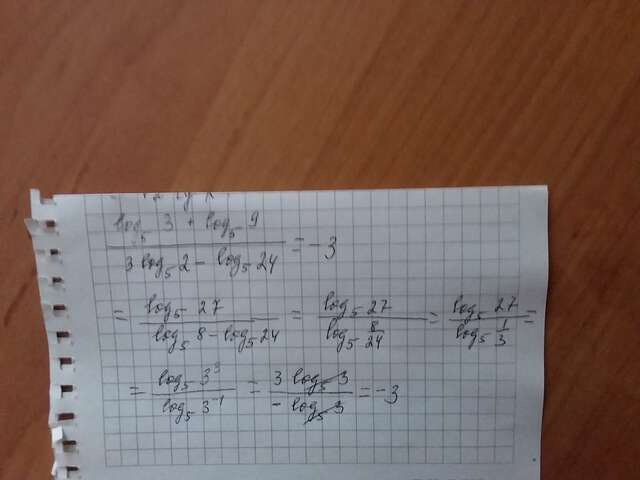 log₅ 3 + log₅ 9 / 3 log₅ 2 - log₅ 24 = -3
= log₅ 27 / log₅ 8 - log₅ 24 = log₅ 27 / log₅ 8/24 = log₅ 27 / log₅ 1/3 =
= log₅ 3³ / log₅ 3⁻¹ = 3 log₅ 3 / - log₅ 3 = -3